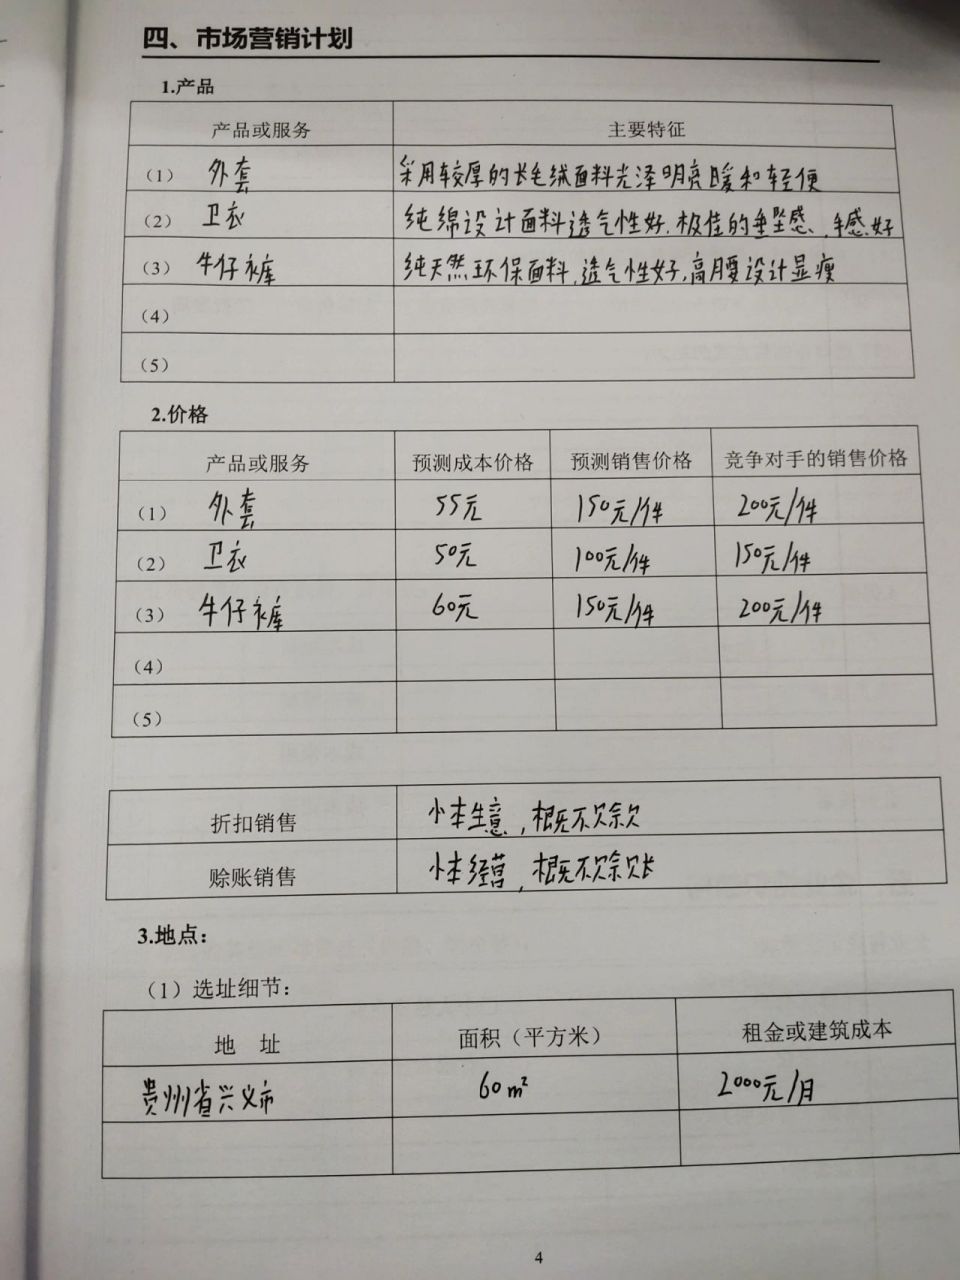 四、市场营销计划
1.产品
产品或服务 主要特征
（1） 外套 采用较厚的长毛绒面料光泽明亮暖和轻便
（2） 卫衣 纯绵设计面料透气性好，极佳的垂坠感、手感好
（3） 牛仔裤 纯天然环保面料，透气性好，高腰设计显瘦
（4）
（5）
2.价格
产品或服务 预测成本价格 预测销售价格 竞争对手的销售价格
（1） 外套 55元 150元/件 200元/件
（2） 卫衣 50元 100元/件 150元/件
（3） 牛仔裤 60元 150元/件 200元/件
（4）
（5）
折扣销售 小本生意，概不赊欠
赊账销售 小本经营，概不赊账
3.地点：
（1）选址细节：
地 址 面积（平方米） 租金或建筑成本
贵州省兴义市 60m² 2000元/月
4